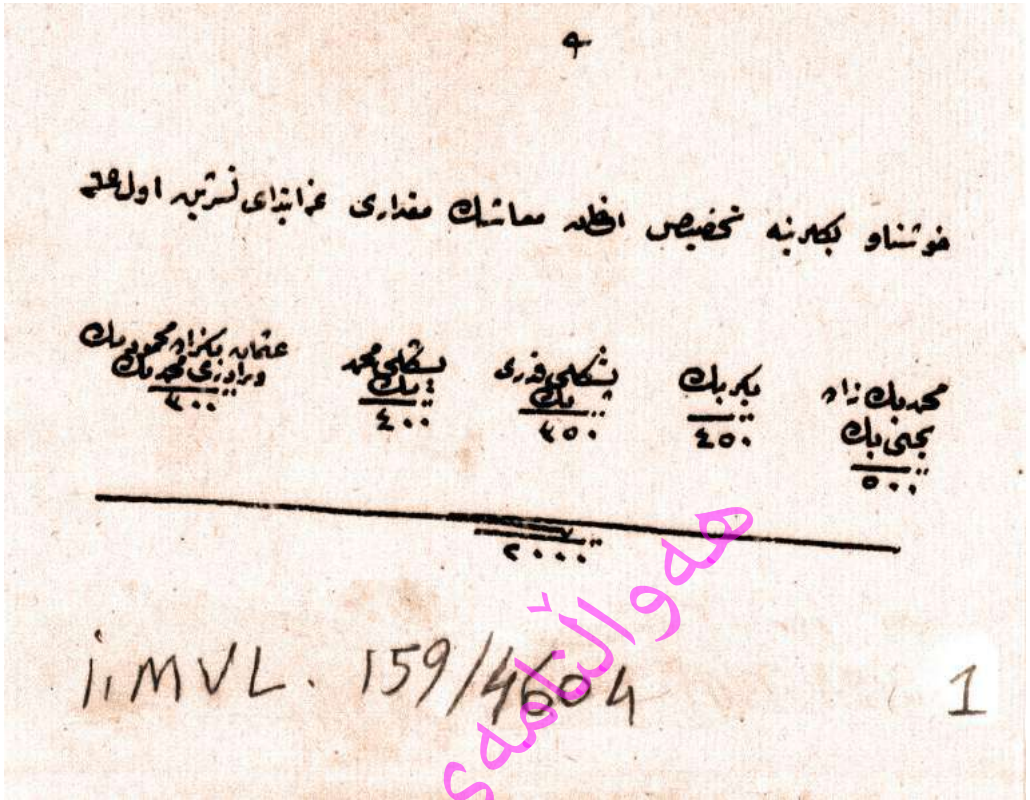 خوشناو بكلرينه تخصيص اولنان معاشك مقدارى غرا ابتداى تشرين اول
محمد بك زاده يحيى بك ٥٠٠
بكر بك ٤٥٠
پشكلى قدرى بك ٣٥٠
پشكلى محمد بك ٤٠٠
عثمان بكزاده محمود بك
محمد بك ٣٠٠
٢٠٠٠
İ.MVL. 159/4604
1
هەواڵنامەی